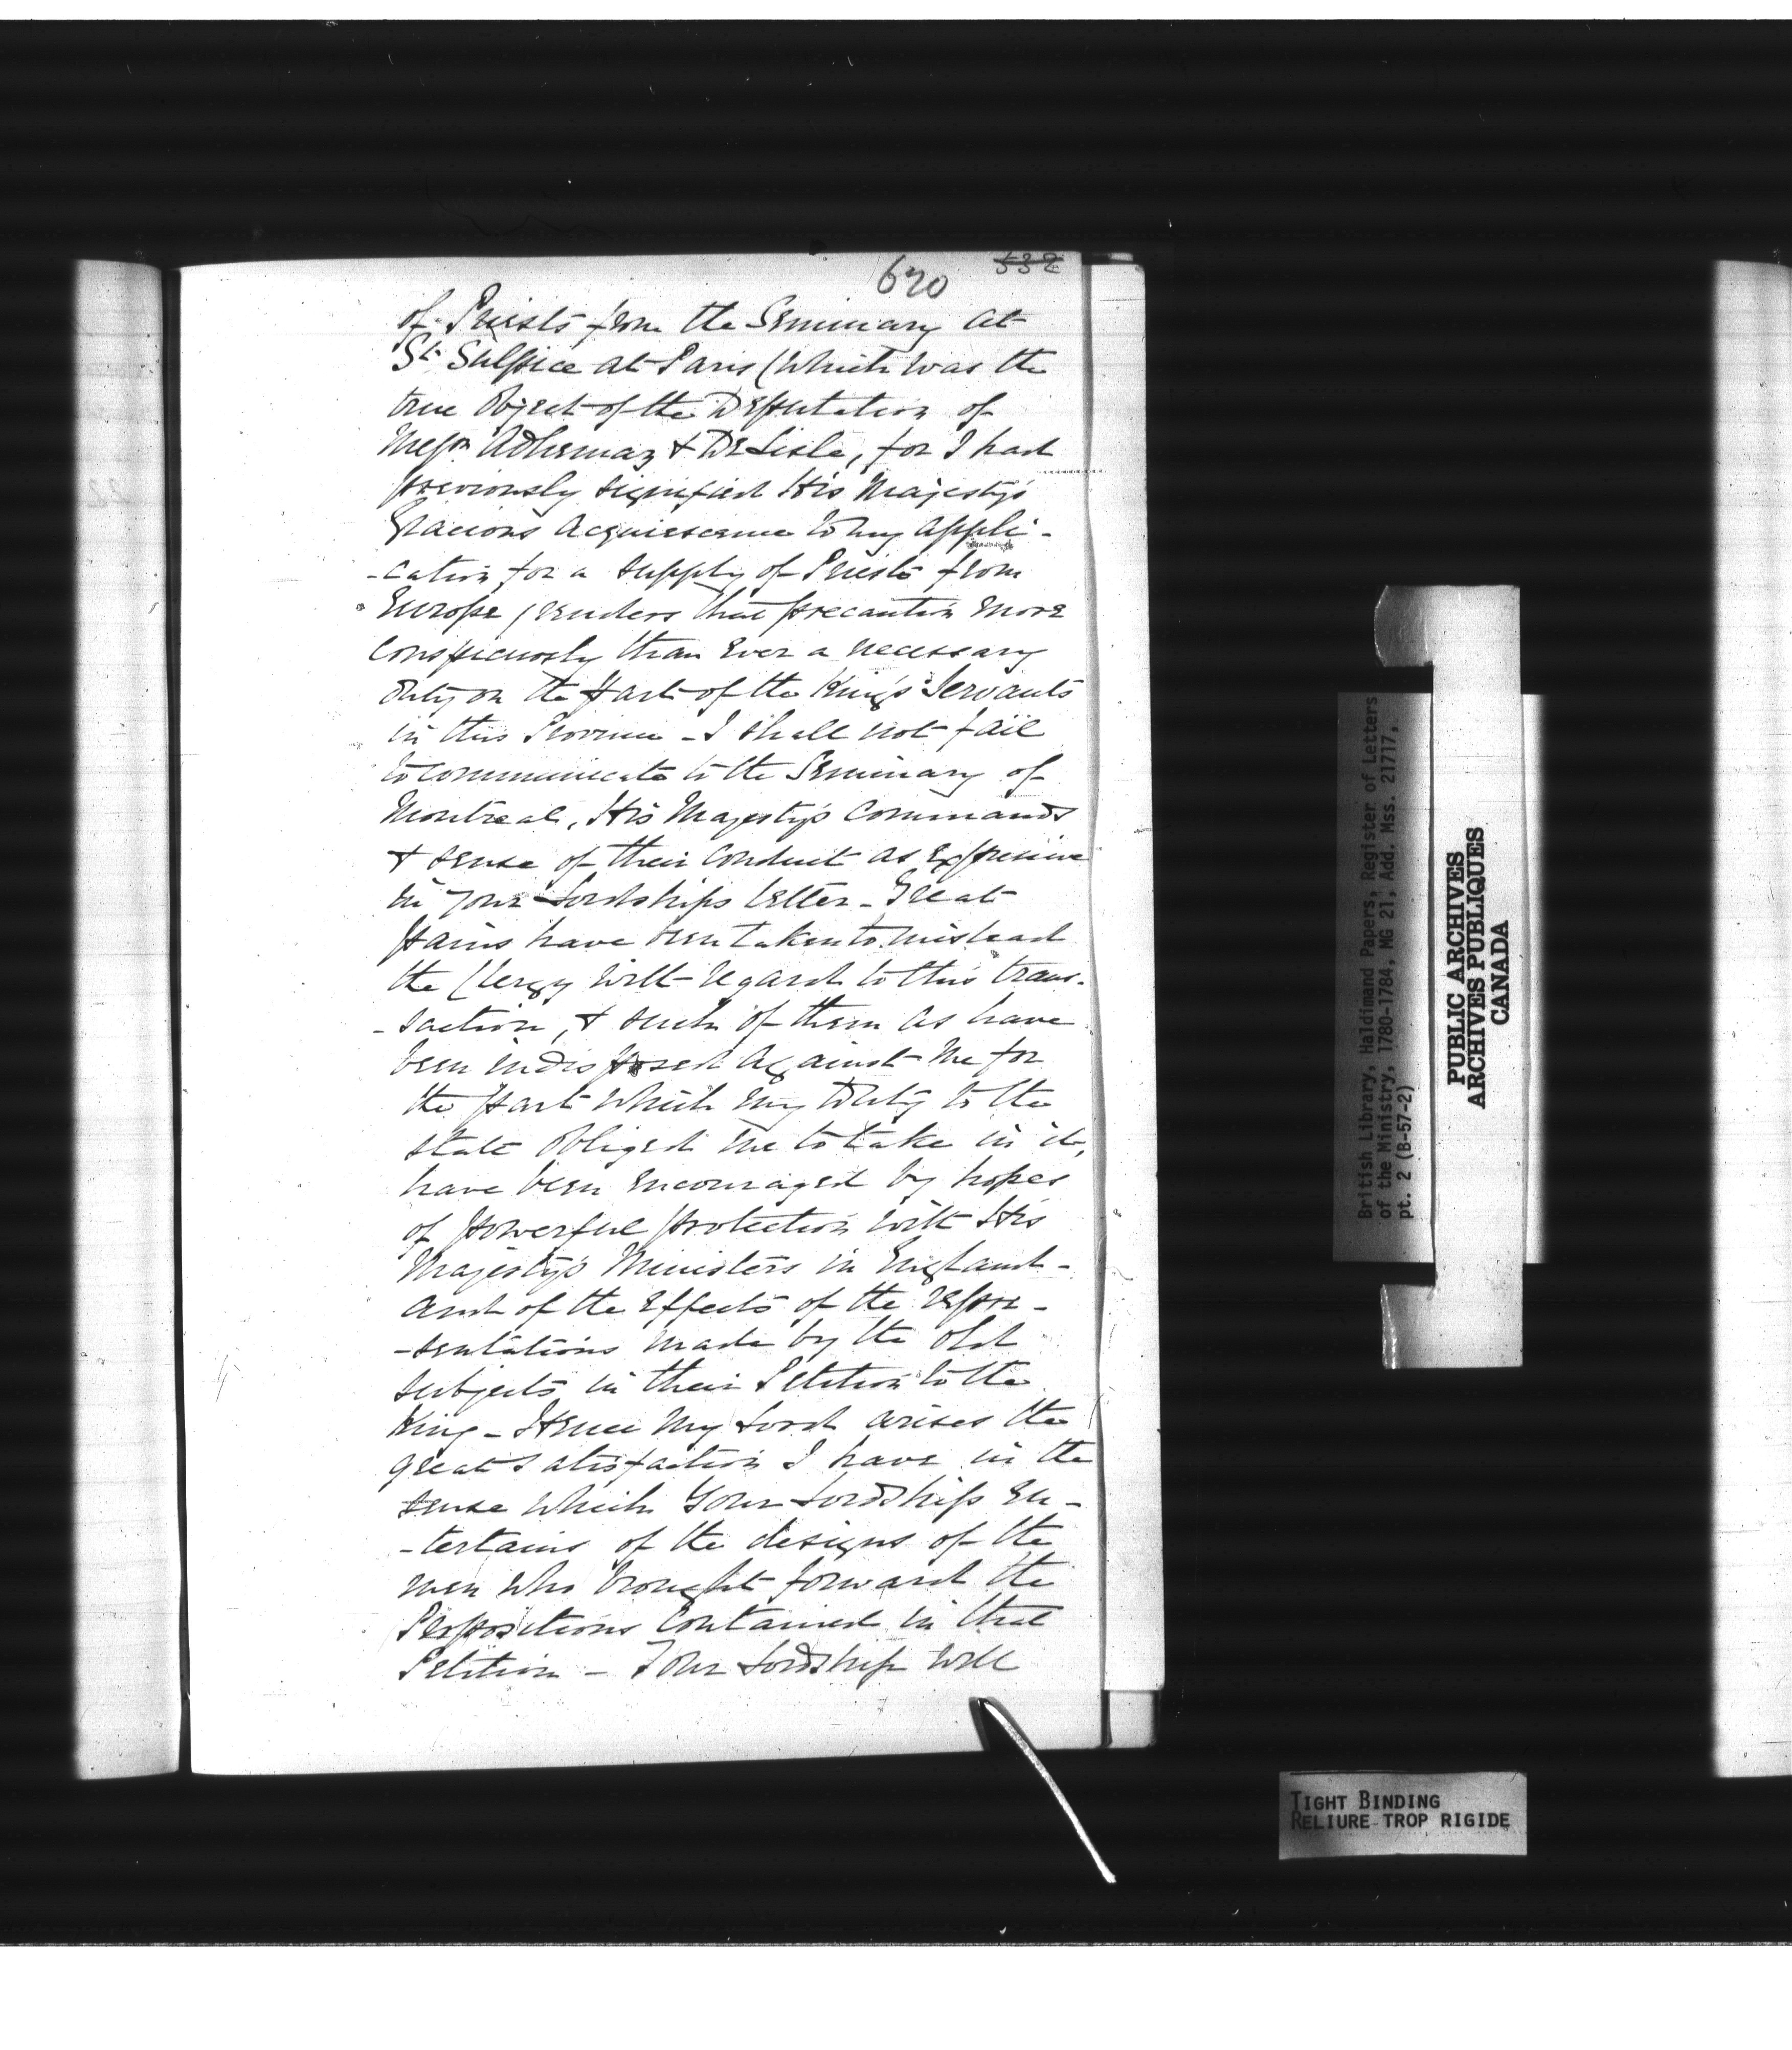 620
532
of Priests from the Seminary at
St Sulpice at Paris (which was the
true Object of the Deputation of
Messrs Adhemar & De Lisle, for I had
previously signified His Majesty's
Gracious Acquiescence to my appli-
-cation for a supply of Priests from
Europe) renders that precaution more
conspicuously than ever a necessary
duty on the part of the King's Servants
in this Province - I shall not fail
to communicate to the Seminary of
Montreal, His Majesty's Commands
& sense of their conduct as expressive
in your Lordships letter - Great
pains have been taken to mislead
the Clergy with regard to this trans-
-saction, & such of them as have
been indisposed against me for
the part which my Duty to the
state obliged me to take in it,
have been encouraged by hopes
of powerful protection with His
Majesty's Ministers in England -
and of the effects of the repre-
-sentations made by the old
subjects in their Petition to the
King - Hence My Lord arises the
great satisfaction I have in the
sense which Your Lordship en-
-tertains of the designs of the
men who brought forward the
Propositions contained in that
Petition - Your Lordship will
British Library, Haldimand Papers, Register of Letters
of the Ministry, 1780-1784, MG 21, Add. Mss. 21717,
pt. 2 (B-57-2)
PUBLIC ARCHIVES
ARCHIVES PUBLIQUES
CANADA
TIGHT BINDING
RELIURE TROP RIGIDE